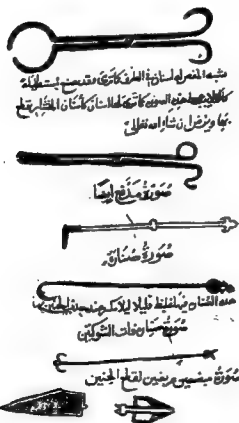 شبه المقص له لسان في الطرف كما ترى وقد يصنع مستطيلة
كالكلاليب على هذه الصورة كما ترى لها أسنان كأسنان المنشار يقطع
بها ويرض ان شاء الله تعالى
صورة مدفع ايضا
صورة صنارة
هذه الصنارة فيها غلظ قليلا لئلا تنكسر عند جذب الجنين بها
صورة صنارة ذات الشوكتين
صورة مبضعين عريضين لقطع الجنين